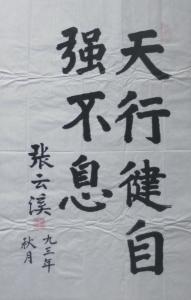 天行健自
强不息
张云溪
九三年
秋月